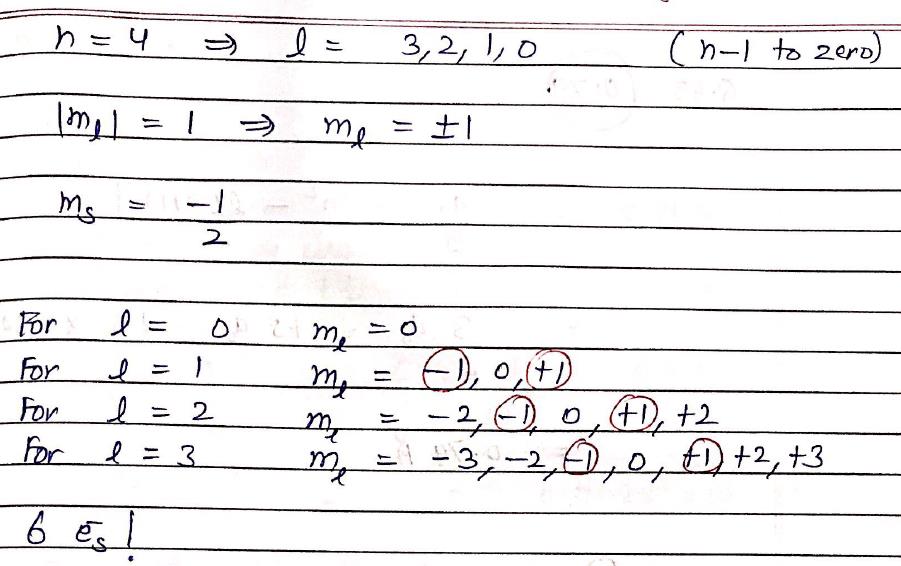 n = 4 ⇒ l = 3, 2, 1, 0 (n-1 to zero)
|mₗ| = 1 ⇒ mₗ = ±1
mₛ = -1/2
For l = 0 mₗ = 0
For l = 1 mₗ = -1, 0, +1
For l = 2 mₗ = -2, -1, 0, +1, +2
For l = 3 mₗ = -3, -2, -1, 0, +1, +2, +3
6 ēₛ!